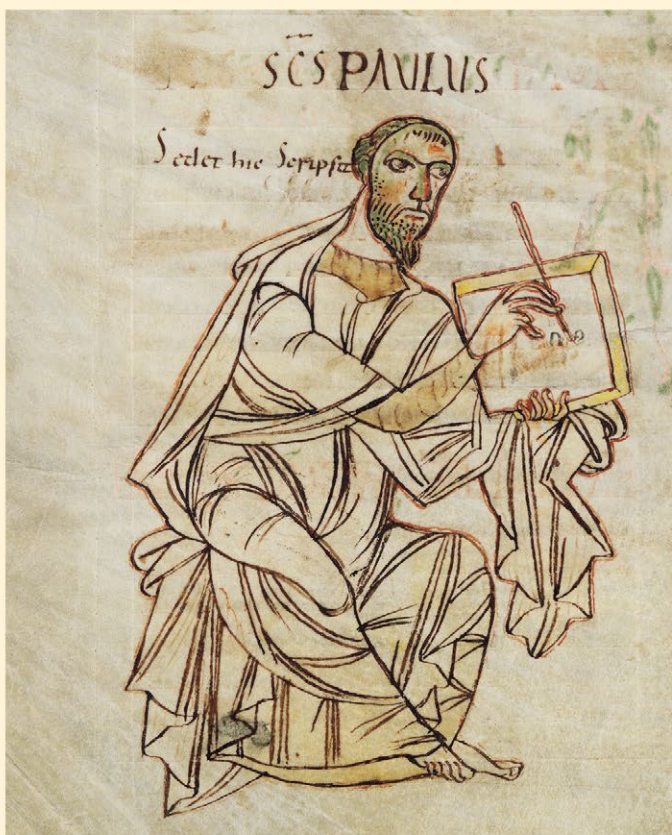 SC̅S PAULUS
Sedet hic Scripsit